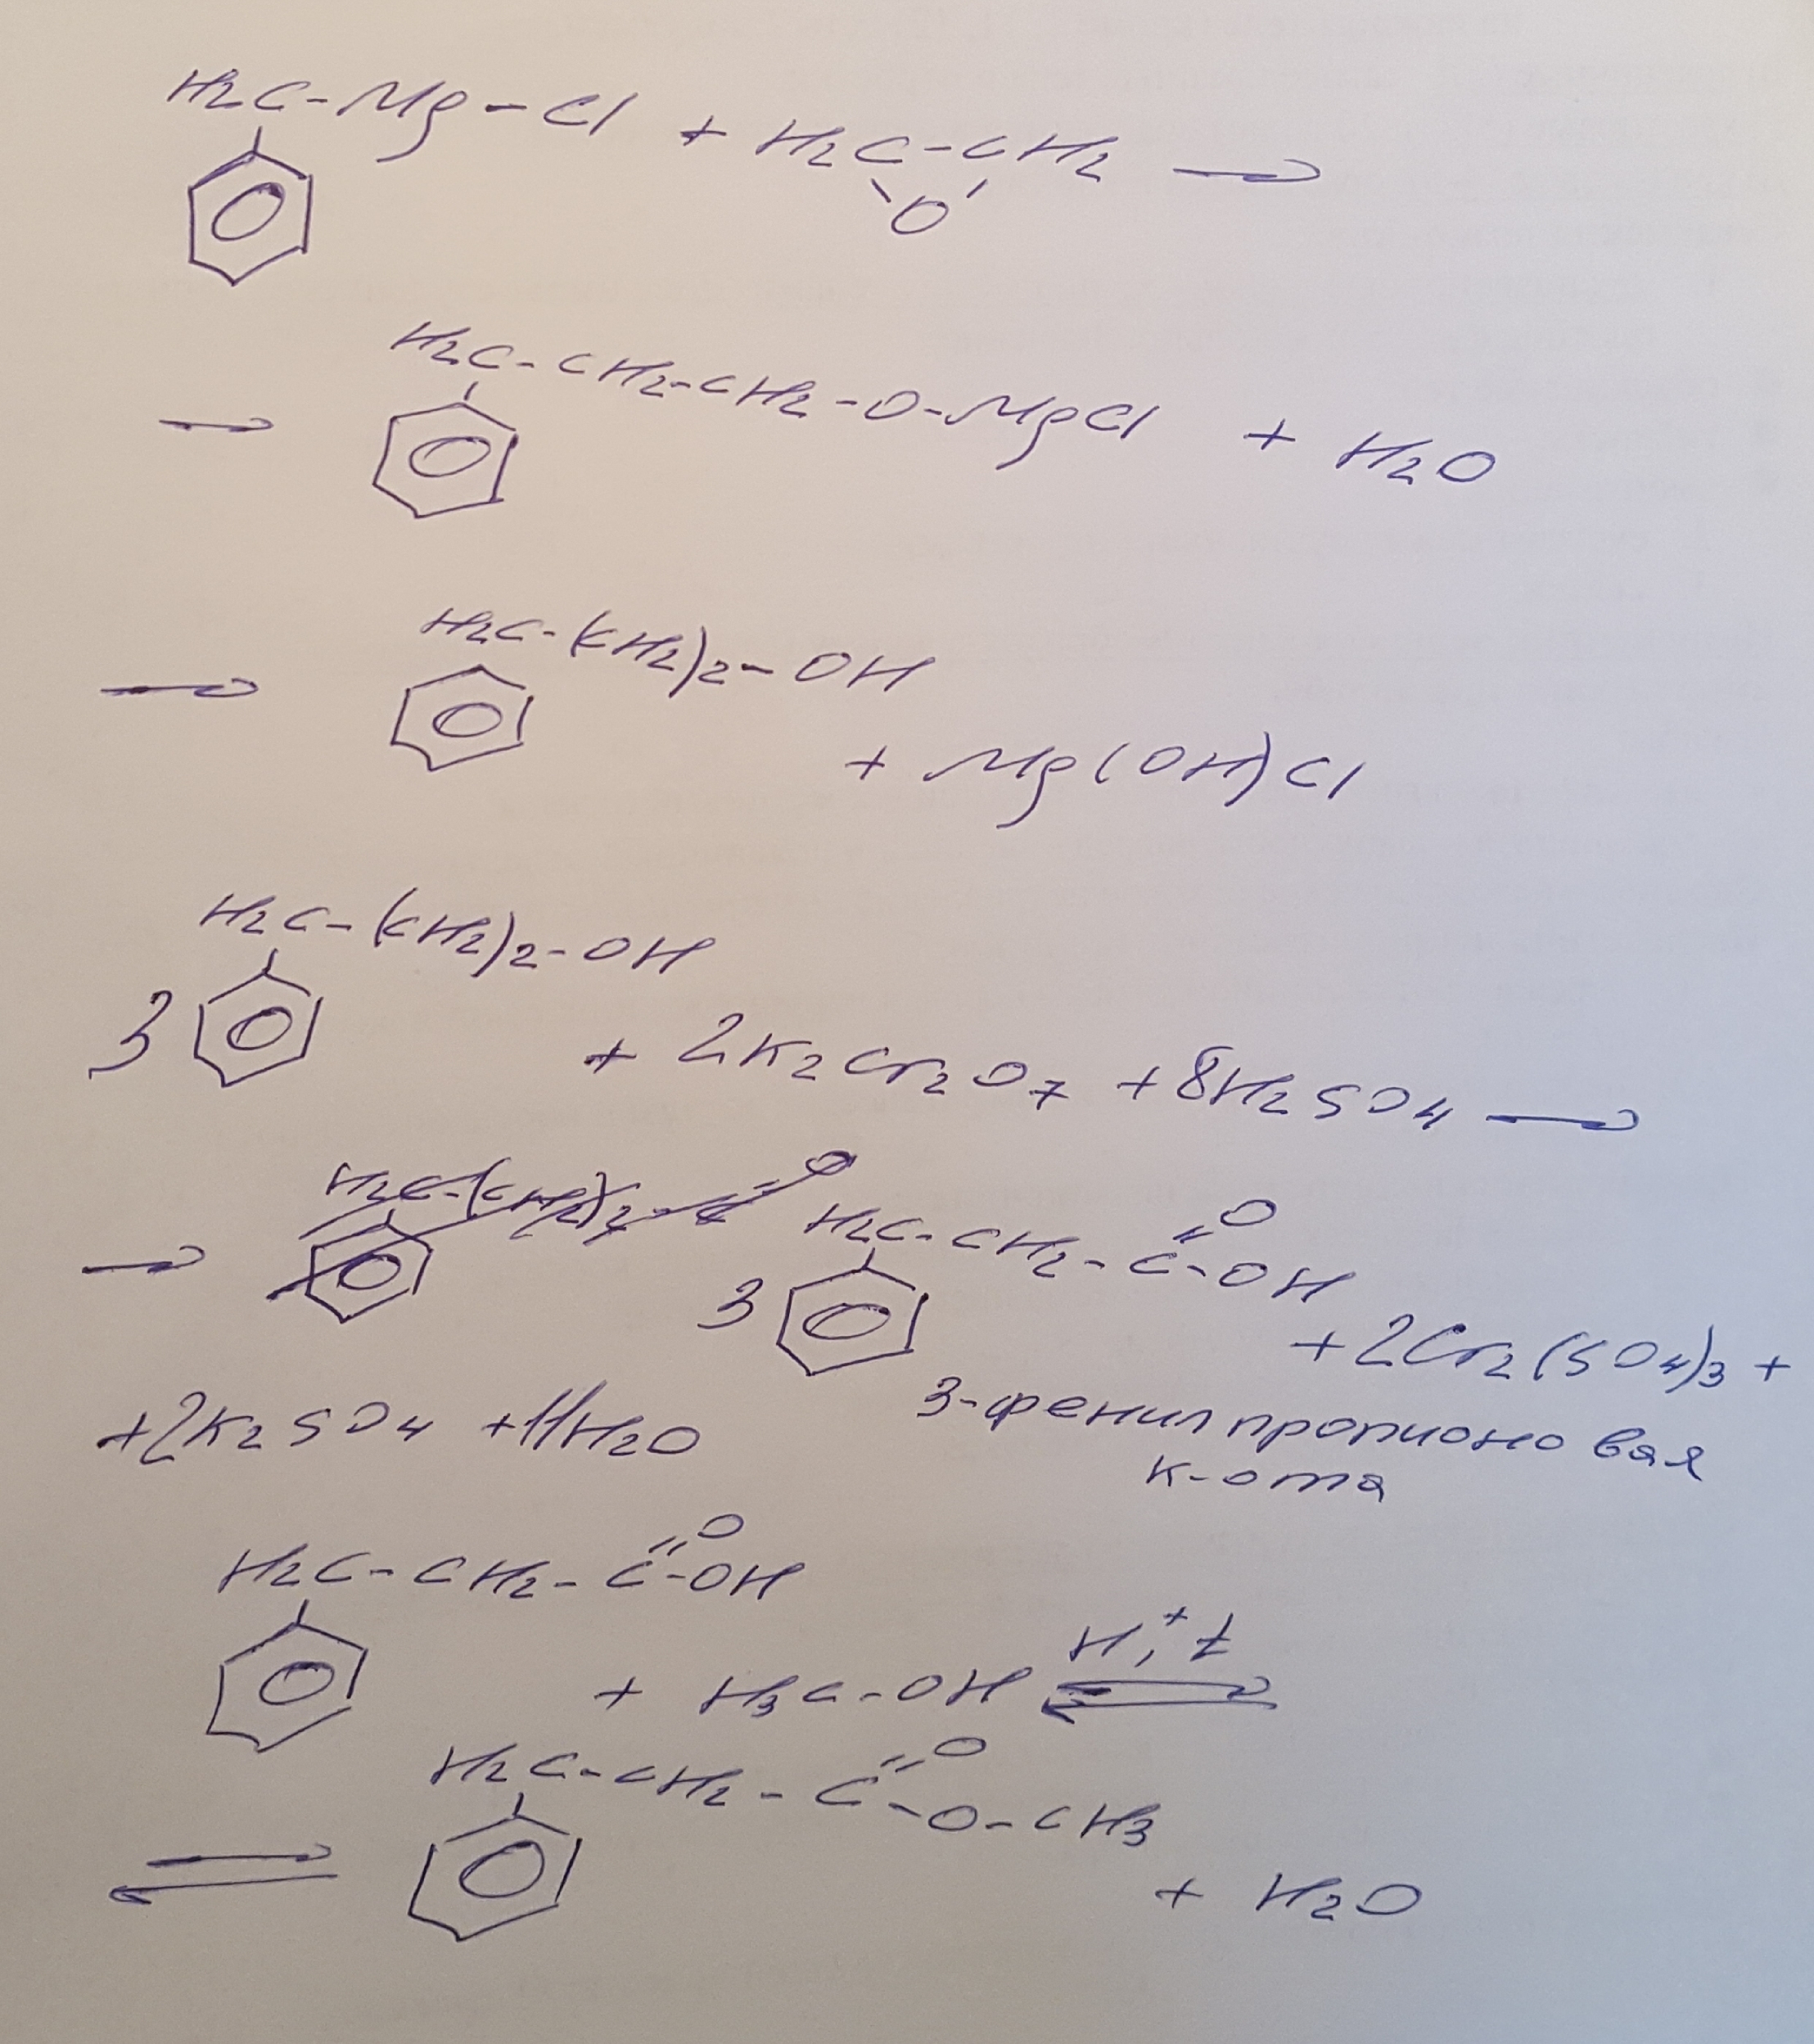 H2C-Mg-Cl + H2C-CH2 →
O
→ H2C-CH2-CH2-O-MgCl + H2O
→ H2C-(CH2)2-OH
+ Mg(OH)Cl
H2C-(CH2)2-OH
3 + 2K2Cr2O7 + 8H2SO4 →
→ H2C-CH2-C=O-OH
3 + 2Cr2(SO4)3 +
3-фенилпропионовая
к-ота
+2K2SO4 +11H2O
H2C-CH2-C=O-OH
+ H3C-OH ⇌ H+, t
⇌ H2C-CH2-C=O-O-CH3
+ H2O